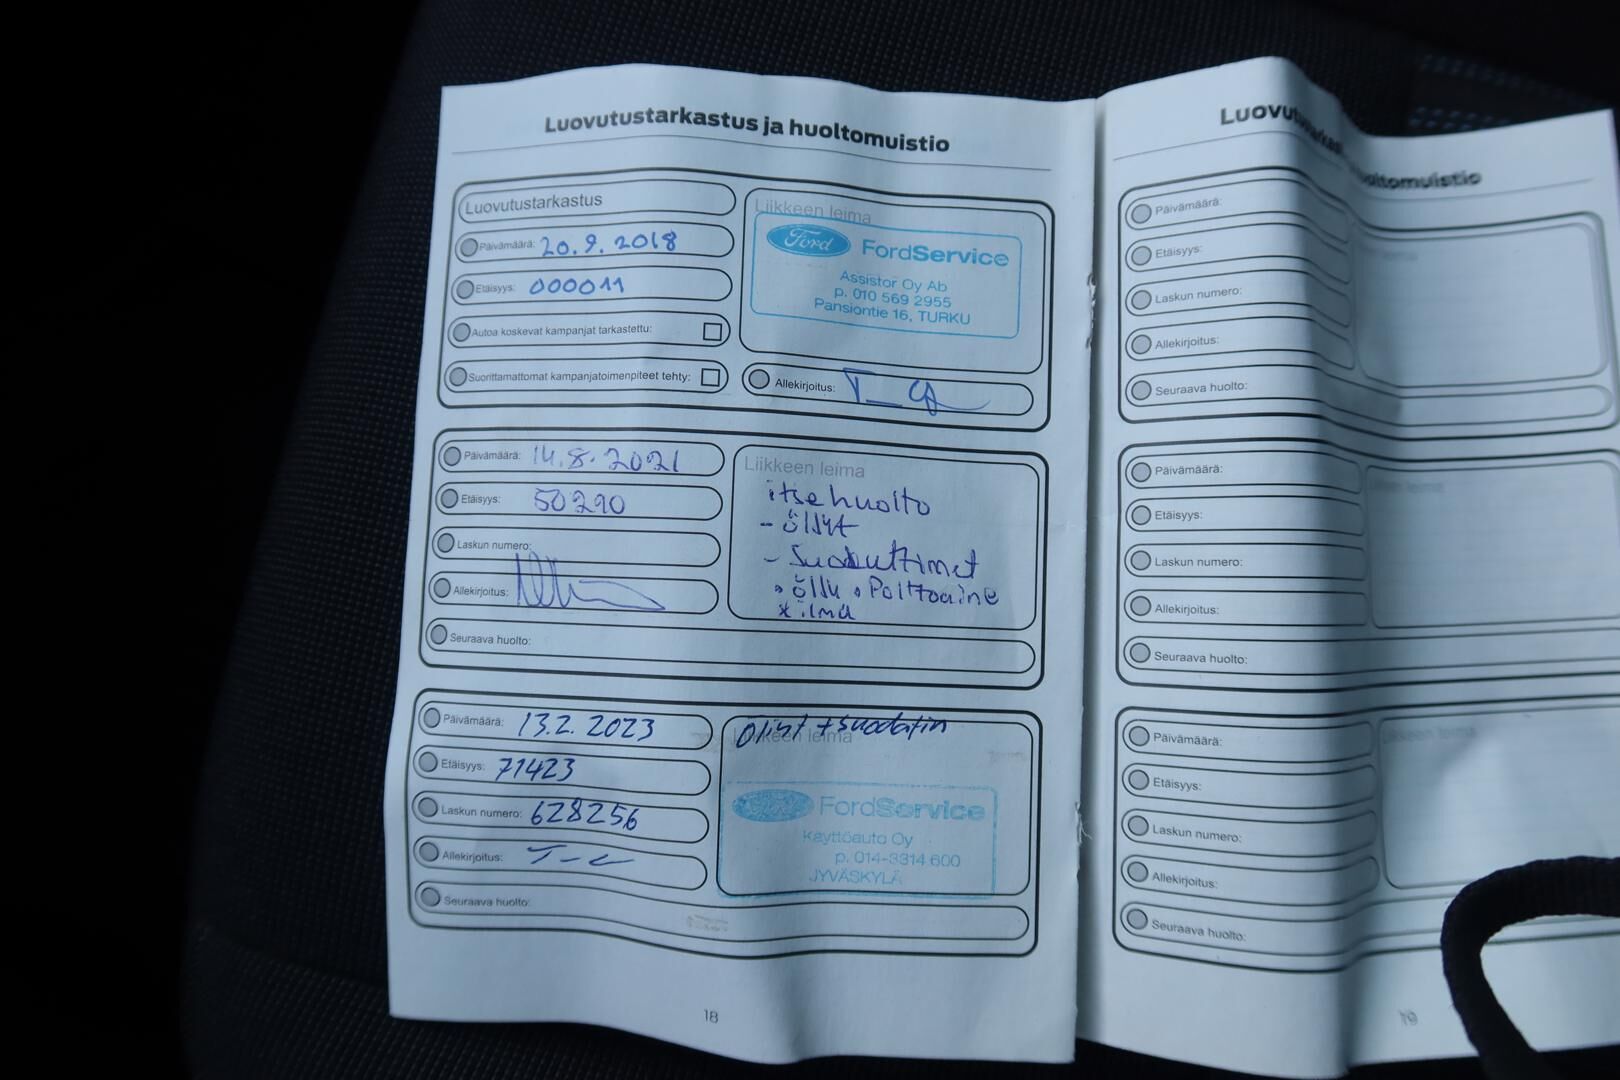 Luovutustarkastus ja huoltomuistio
Luovutustarkastus
Päivämäärä: 20.9.2018
Etäisyys: 000011
Autoa koskevat kampanjat tarkastettu:
Suorittamattomat kampanjatoimenpiteet tehty:
Liikkeen leima
Ford FordService
Assistor Oy Ab
p. 010 569 2955
Pansiontie 16, TURKU
Allekirjoitus:
Päivämäärä: 14.8.2021
Etäisyys: 50290
Laskun numero:
Allekirjoitus:
Seuraava huolto:
Liikkeen leima
itse huolto
- öljyt
- Suodattimet
öljy Polttoaine
ilma
Päivämäärä: 13.2.2023
Etäisyys: 71423
Laskun numero: 628256
Allekirjoitus:
Seuraava huolto:
Öljyt + suodatin
Liikkeen leima
Ford FordService
Käyttöauto Oy
p. 014-3314 600
JYVÄSKYLÄ
18
huoltomuistio
Päivämäärä:
Etäisyys:
Laskun numero:
Allekirjoitus:
Seuraava huolto:
Päivämäärä:
Etäisyys:
Laskun numero:
Allekirjoitus:
Seuraava huolto:
Päivämäärä:
Etäisyys:
Laskun numero:
Allekirjoitus:
Seuraava huolto:
19